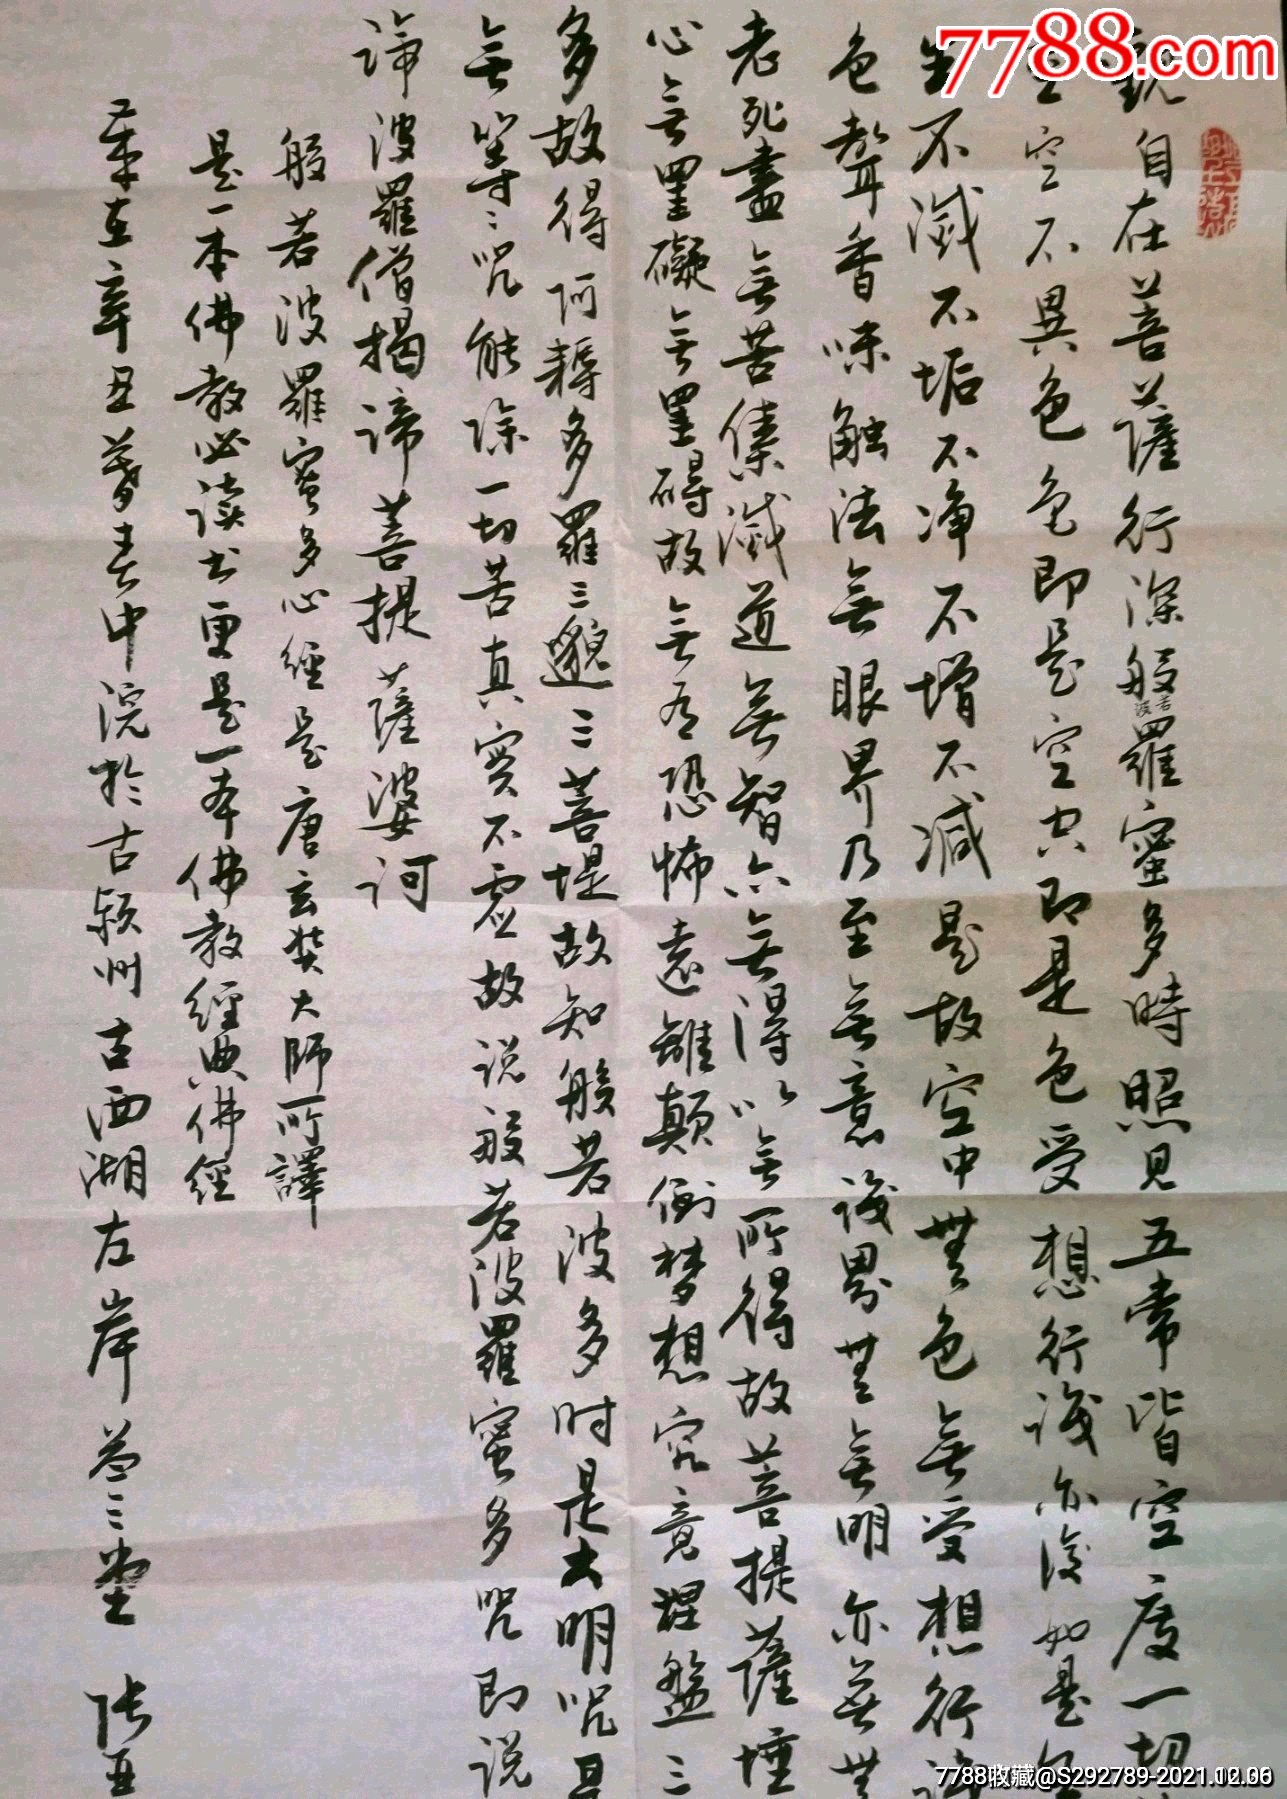 7788.com
觀自在菩薩行深般若波羅蜜多時照見五常皆空度一切
空不異色色即是空空即是色受想行識亦復如是
生不滅不垢不净不增不减是故空中無色無受想行識
色聲香味觸法無眼界乃至無意識界無無明亦無無
老死盡無苦集滅道無智亦無得以無所得故菩提薩埵
心無罣礙無罣碍故無有恐怖遠離顛倒梦想究竟涅盤三
多故得阿耨多羅三藐三菩提故知般若波多时是大明咒是
無等等咒能除一切苦真實不虚故说般若波羅蜜多咒即说
諦波羅僧揭諦菩提薩婆訶
般若波羅蜜多心經是唐玄奘大師所譯
是一本佛教必读书更是一本佛教經典佛經
辛丑暮春中浣於古颍州古西湖左岸益三堂 张亚
7788收藏@S292789-2021.12.06